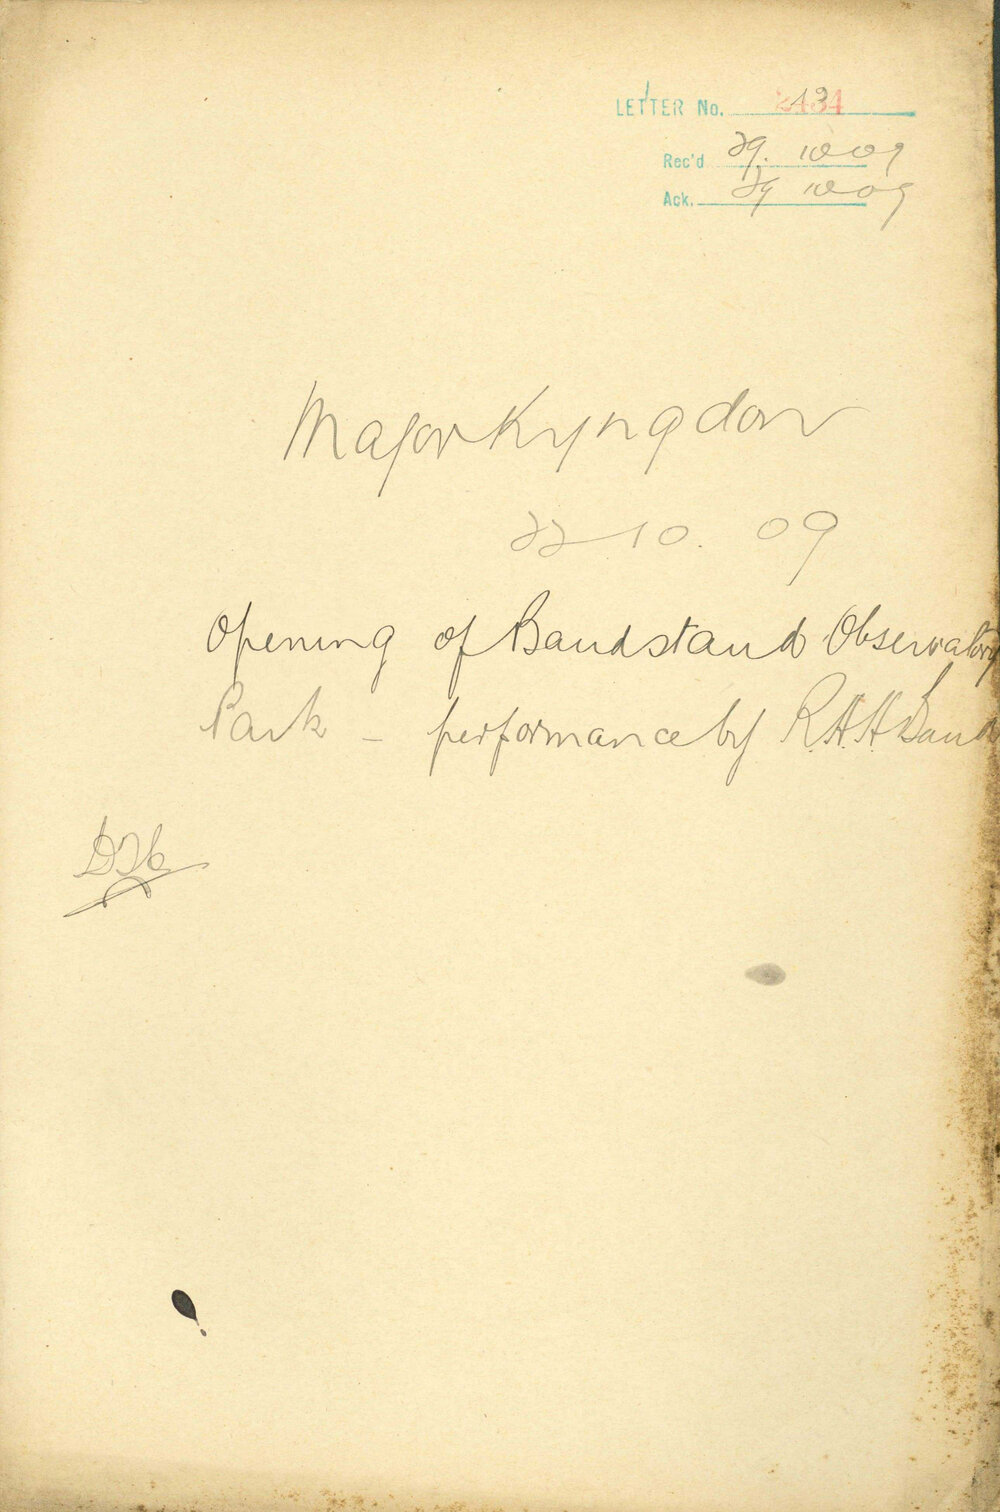 LETTER No. 2434
Rec'd 29. 10 09
Ack. 29 10 09
Major Kyngdon
22 10. 09
Opening of Bandstand Observatory
Park - performance by R.A.A Band